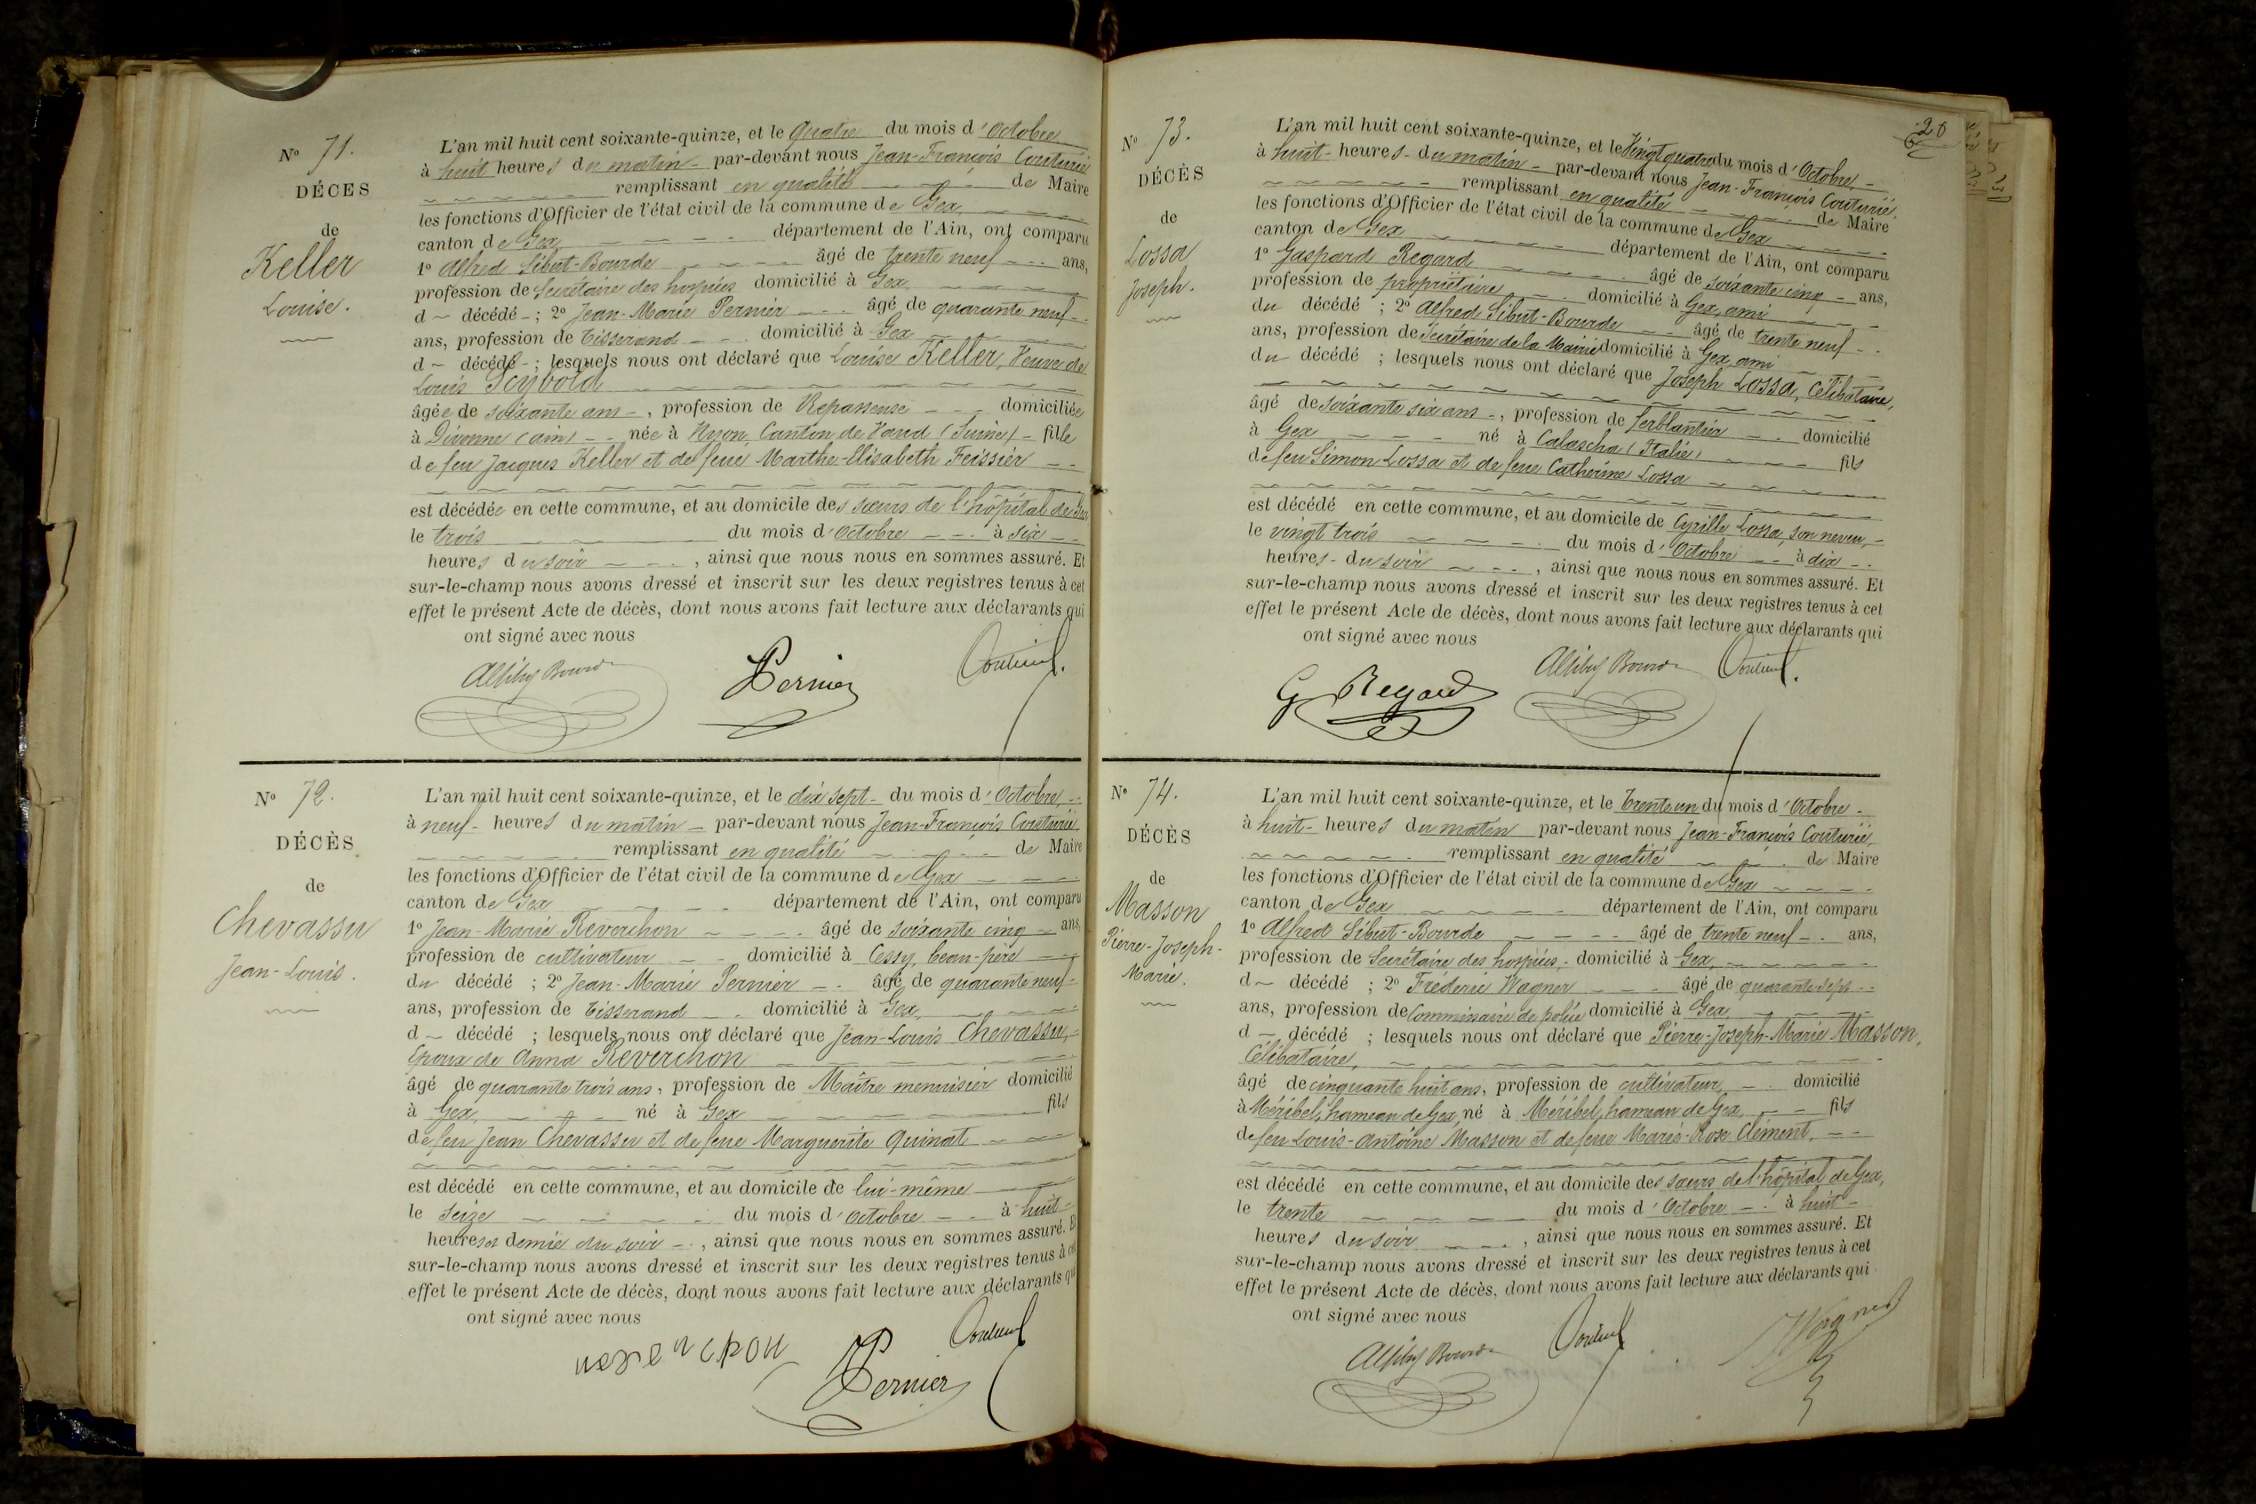 Nº 71.
DÉCES
de
Keller
Louise.
L'an mil huit cent soixante-quinze, et le quatre du mois d'Octobre
à huit heures du matin par-devant nous Jean-François Couturié
remplissant en qualité de Maire
les fonctions d'Officier de l'état civil de la commune de Gex
canton de Gex département de l'Ain, ont comparu
1º Alfred Sibut-Bourde âgé de trente neuf ans,
profession de Secrétaire des hospices domicilié à Gex
d décédé ; 2º Jean-Marie Pernier âgé de quarante neuf
ans, profession de Tisserand domicilié à Gex
d décédé ; lesquels nous ont déclaré que Louise Keller, Veuve de
Louis Seybold
âgée de soixante ans, profession de Repasseuse domiciliée
à Divonne (ain) née à Nyon, Canton de Vaud (Suisse) fille
de feu Jacques Keller et de feue Marthe-Elisabeth Feissier
est décédée en cette commune, et au domicile des sœurs de l'hôpital de Gex
le trois du mois d'Octobre à six
heures du soir, ainsi que nous nous en sommes assuré. Et
sur-le-champ nous avons dressé et inscrit sur les deux registres tenus à cet
effet le présent Acte de décès, dont nous avons fait lecture aux déclarants qui
ont signé avec nous
ASibut Bourde Pernier Couturié.
Nº 72.
DÉCÈS
de
Chevassu
Jean-Louis.
L'an mil huit cent soixante-quinze, et le dix sept du mois d'Octobre,
à neuf heures du matin par-devant nous Jean-François Couturié,
remplissant en qualité de Maire
les fonctions d'Officier de l'état civil de la commune de Gex
canton de Gex département de l'Ain, ont comparu
1º Jean-Marie Reverchon âgé de soixante cinq ans,
profession de cultivateur domicilié à Cessy, beau-père
du décédé ; 2º Jean-Marie Pernier âgé de quarante neuf
ans, profession de Tisserand domicilié à Gex,
d décédé ; lesquels nous ont déclaré que Jean-Louis Chevassu,
Epoux de Anna Reverchon
âgé de quarante trois ans, profession de Maître menuisier domicilié
à Gex, né à Gex fils
de feu Jean Chevassu et de feue Marguerite Quinat
est décédé en cette commune, et au domicile de lui-même
le seize du mois d'Octobre à huit
heures et demie du soir, ainsi que nous nous en sommes assuré. Et
sur-le-champ nous avons dressé et inscrit sur les deux registres tenus à cet
effet le présent Acte de décès, dont nous avons fait lecture aux déclarants qui
ont signé avec nous
Pernier Couturié
20
Nº 73.
DÉCÈS
de
Lossa
Joseph.
L'an mil huit cent soixante-quinze, et le Vingt quatre du mois d'Octobre,
à huit heures du matin par-devant nous Jean-François Couturié,
remplissant en qualité de Maire
les fonctions d'Officier de l'état civil de la commune de Gex
canton de Gex département de l'Ain, ont comparu
1º Gaspard Regard âgé de soixante cinq ans,
profession de propriétaire domicilié à Gex, ami
du décédé ; 2º Alfred Sibut-Bourde âgé de trente neuf
ans, profession de Secrétaire de la Mairie domicilié à Gex, ami
du décédé ; lesquels nous ont déclaré que Joseph Lossa, Célibataire,
âgé de soixante six ans, profession de ferblantier domicilié
à Gex né à Calascha (Italie) fils
de feu Simon Lossa et de feue Catherine Lossa
est décédé en cette commune, et au domicile de Cyrille Lossa, son neveu,
le vingt trois du mois d'Octobre à dix
heures du soir, ainsi que nous nous en sommes assuré. Et
sur-le-champ nous avons dressé et inscrit sur les deux registres tenus à cet
effet le présent Acte de décès, dont nous avons fait lecture aux déclarants qui
ont signé avec nous
G Regard ASibut Bourde Couturié.
Nº 74.
DÉCÈS
de
Masson
Pierre-Joseph-
Marie.
L'an mil huit cent soixante-quinze, et le Trente un du mois d'Octobre
à huit heures du matin par-devant nous Jean-François Couturié,
remplissant en qualité de Maire
les fonctions d'Officier de l'état civil de la commune de Gex
canton de Gex département de l'Ain, ont comparu
1º Alfred Sibut-Bourde âgé de trente neuf ans,
profession de Secrétaire des hospices, domicilié à Gex,
d décédé ; 2º Fréderic Wagner âgé de quarante sept
ans, profession de Commissaire de police domicilié à Gex,
d décédé ; lesquels nous ont déclaré que Pierre-Joseph-Marie Masson,
Célibataire,
âgé de cinquante huit ans, profession de cultivateur, domicilié
à Méribel, hameau de Gex, né à Méribel, hameau de Gex, fils
de feu Louis-Antoine Masson et de feue Marie-Rose Clément,
est décédé en cette commune, et au domicile des sœurs de l'hôpital de Gex,
le trente du mois d'Octobre à huit
heures du soir, ainsi que nous nous en sommes assuré. Et
sur-le-champ nous avons dressé et inscrit sur les deux registres tenus à cet
effet le présent Acte de décès, dont nous avons fait lecture aux déclarants qui
ont signé avec nous
ASibut Bourde Couturié Wagner